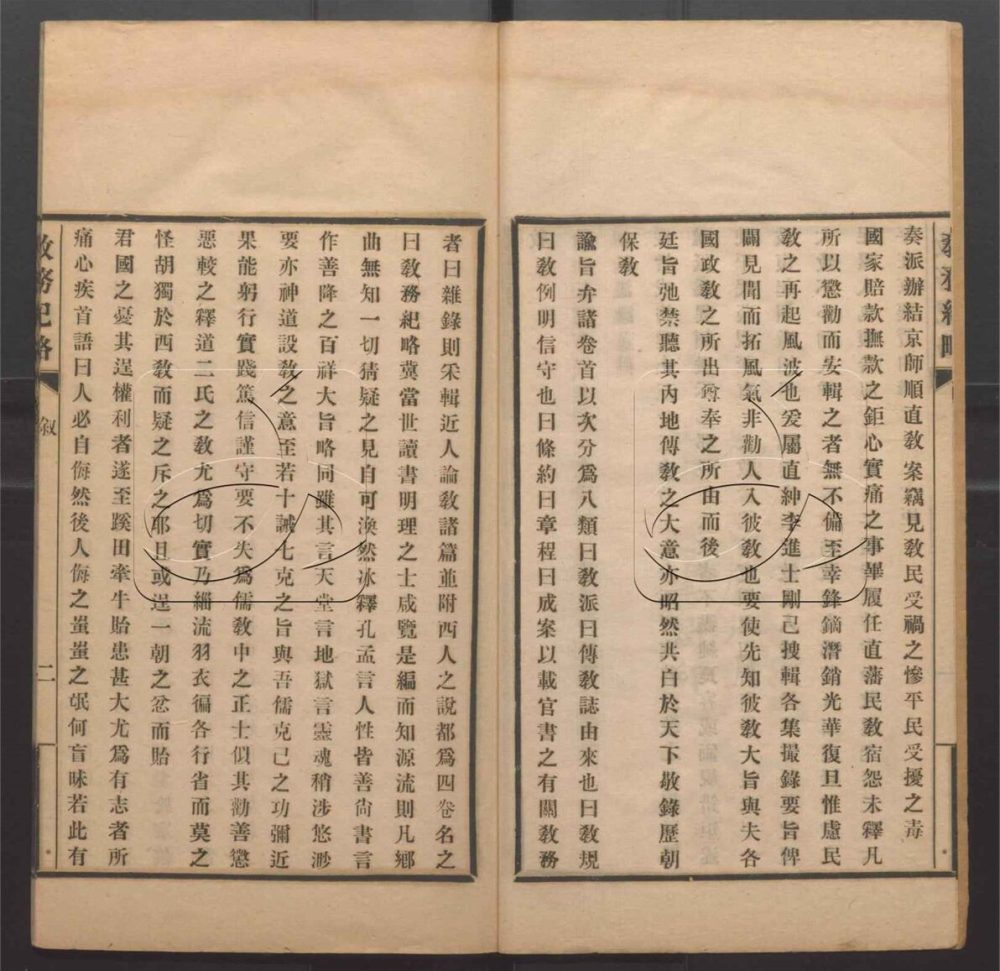 奏派辦結京師順直敎案竊見敎民受禍之慘平民受擾之毒
國家賠款撫款之鉅心實痛之事畢履任直藩民敎宿怨未釋凡
所以懲勸而安輯之者無不備至幸鋒鏑潛銷光華復旦惟慮民
敎之再起風波也爰屬直紳李進士剛己搜輯各集撮錄要旨俾
闢見聞而拓風氣非勸人入彼敎也要使先知彼敎大旨與夫各
國政敎之所出尊奉之所由而後
廷旨弛禁聽其內地傳敎之大意亦昭然共白於天下敬錄歷朝
保敎
諭旨弁諸卷首以次分爲八類曰敎派曰傳敎誌由來也曰敎規
曰敎例明信守也曰條約曰章程曰成案以載官書之有關敎務
者曰雜錄則采輯近人論敎諸篇並附西人之說都爲四卷名之
曰敎務紀略冀當世讀書明理之士咸覽是編而知源流則凡鄉
曲無知一切猜疑之見自可渙然冰釋孔孟言人性皆善尚書言
作善降之百祥大旨略同雖其言天堂言地獄言靈魂稍涉悠渺
要亦神道設敎之意至若十誡七克之旨與吾儒克己之功彌近
果能躬行實踐篤信謹守要不失爲儒敎中之正士似其勸善懲
惡較之釋道二氏之敎尤爲切實乃緇流羽衣徧各行省而莫之
怪胡獨於西敎而疑之斥之耶且或逞一朝之忿而貽
君國之憂其逞權利者遂至蹊田牽牛貽患甚大尤爲有志者所
痛心疾首語曰人必自侮然後人侮之蚩蚩之氓何盲昧若此有
敎務紀略
叙
二